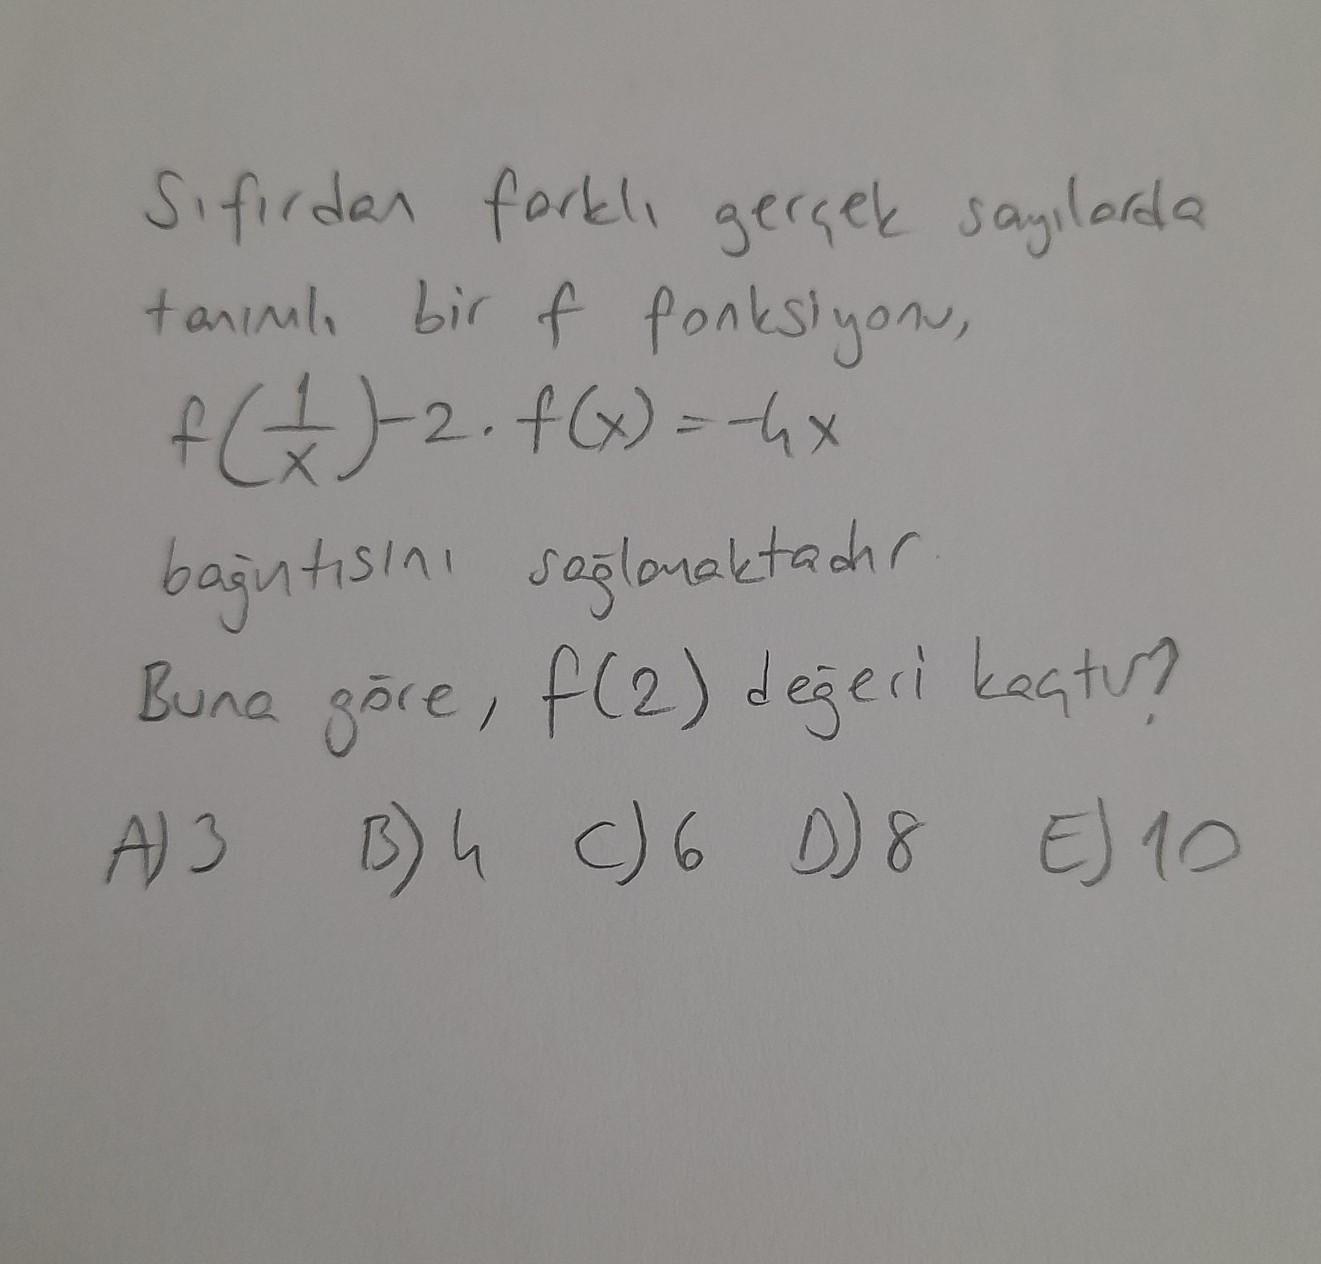 Sıfırdan farklı gerçek sayılarda
tanımlı bir f fonksiyonu,
f(1/x) - 2. f(x) = -4x
bağıntısını sağlamaktadır.
Buna göre, f(2) değeri kaçtır?
A) 3 B) 4 C) 6 D) 8 E) 10